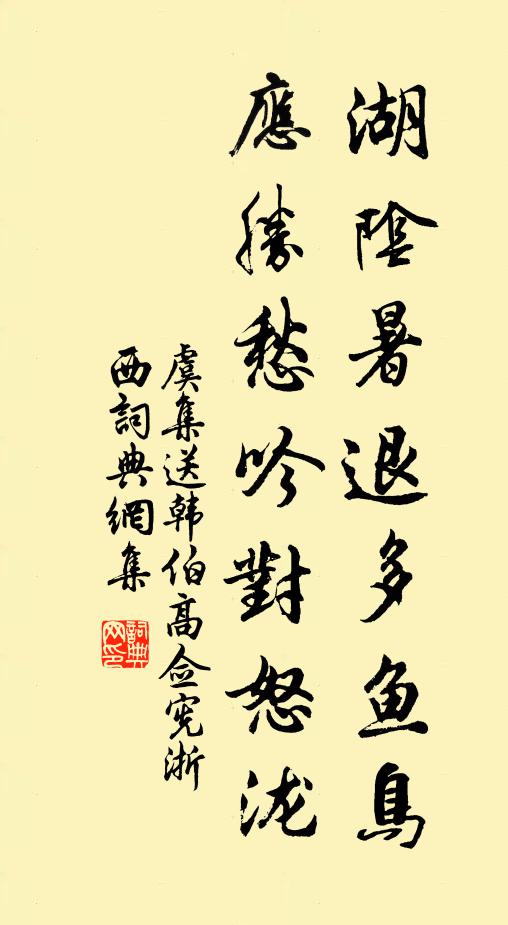 湖陰暑退多鱼鳥
應勝愁吟對怒泷
虞集送韩伯高佥宪浙
西詞典網集
詞典网印